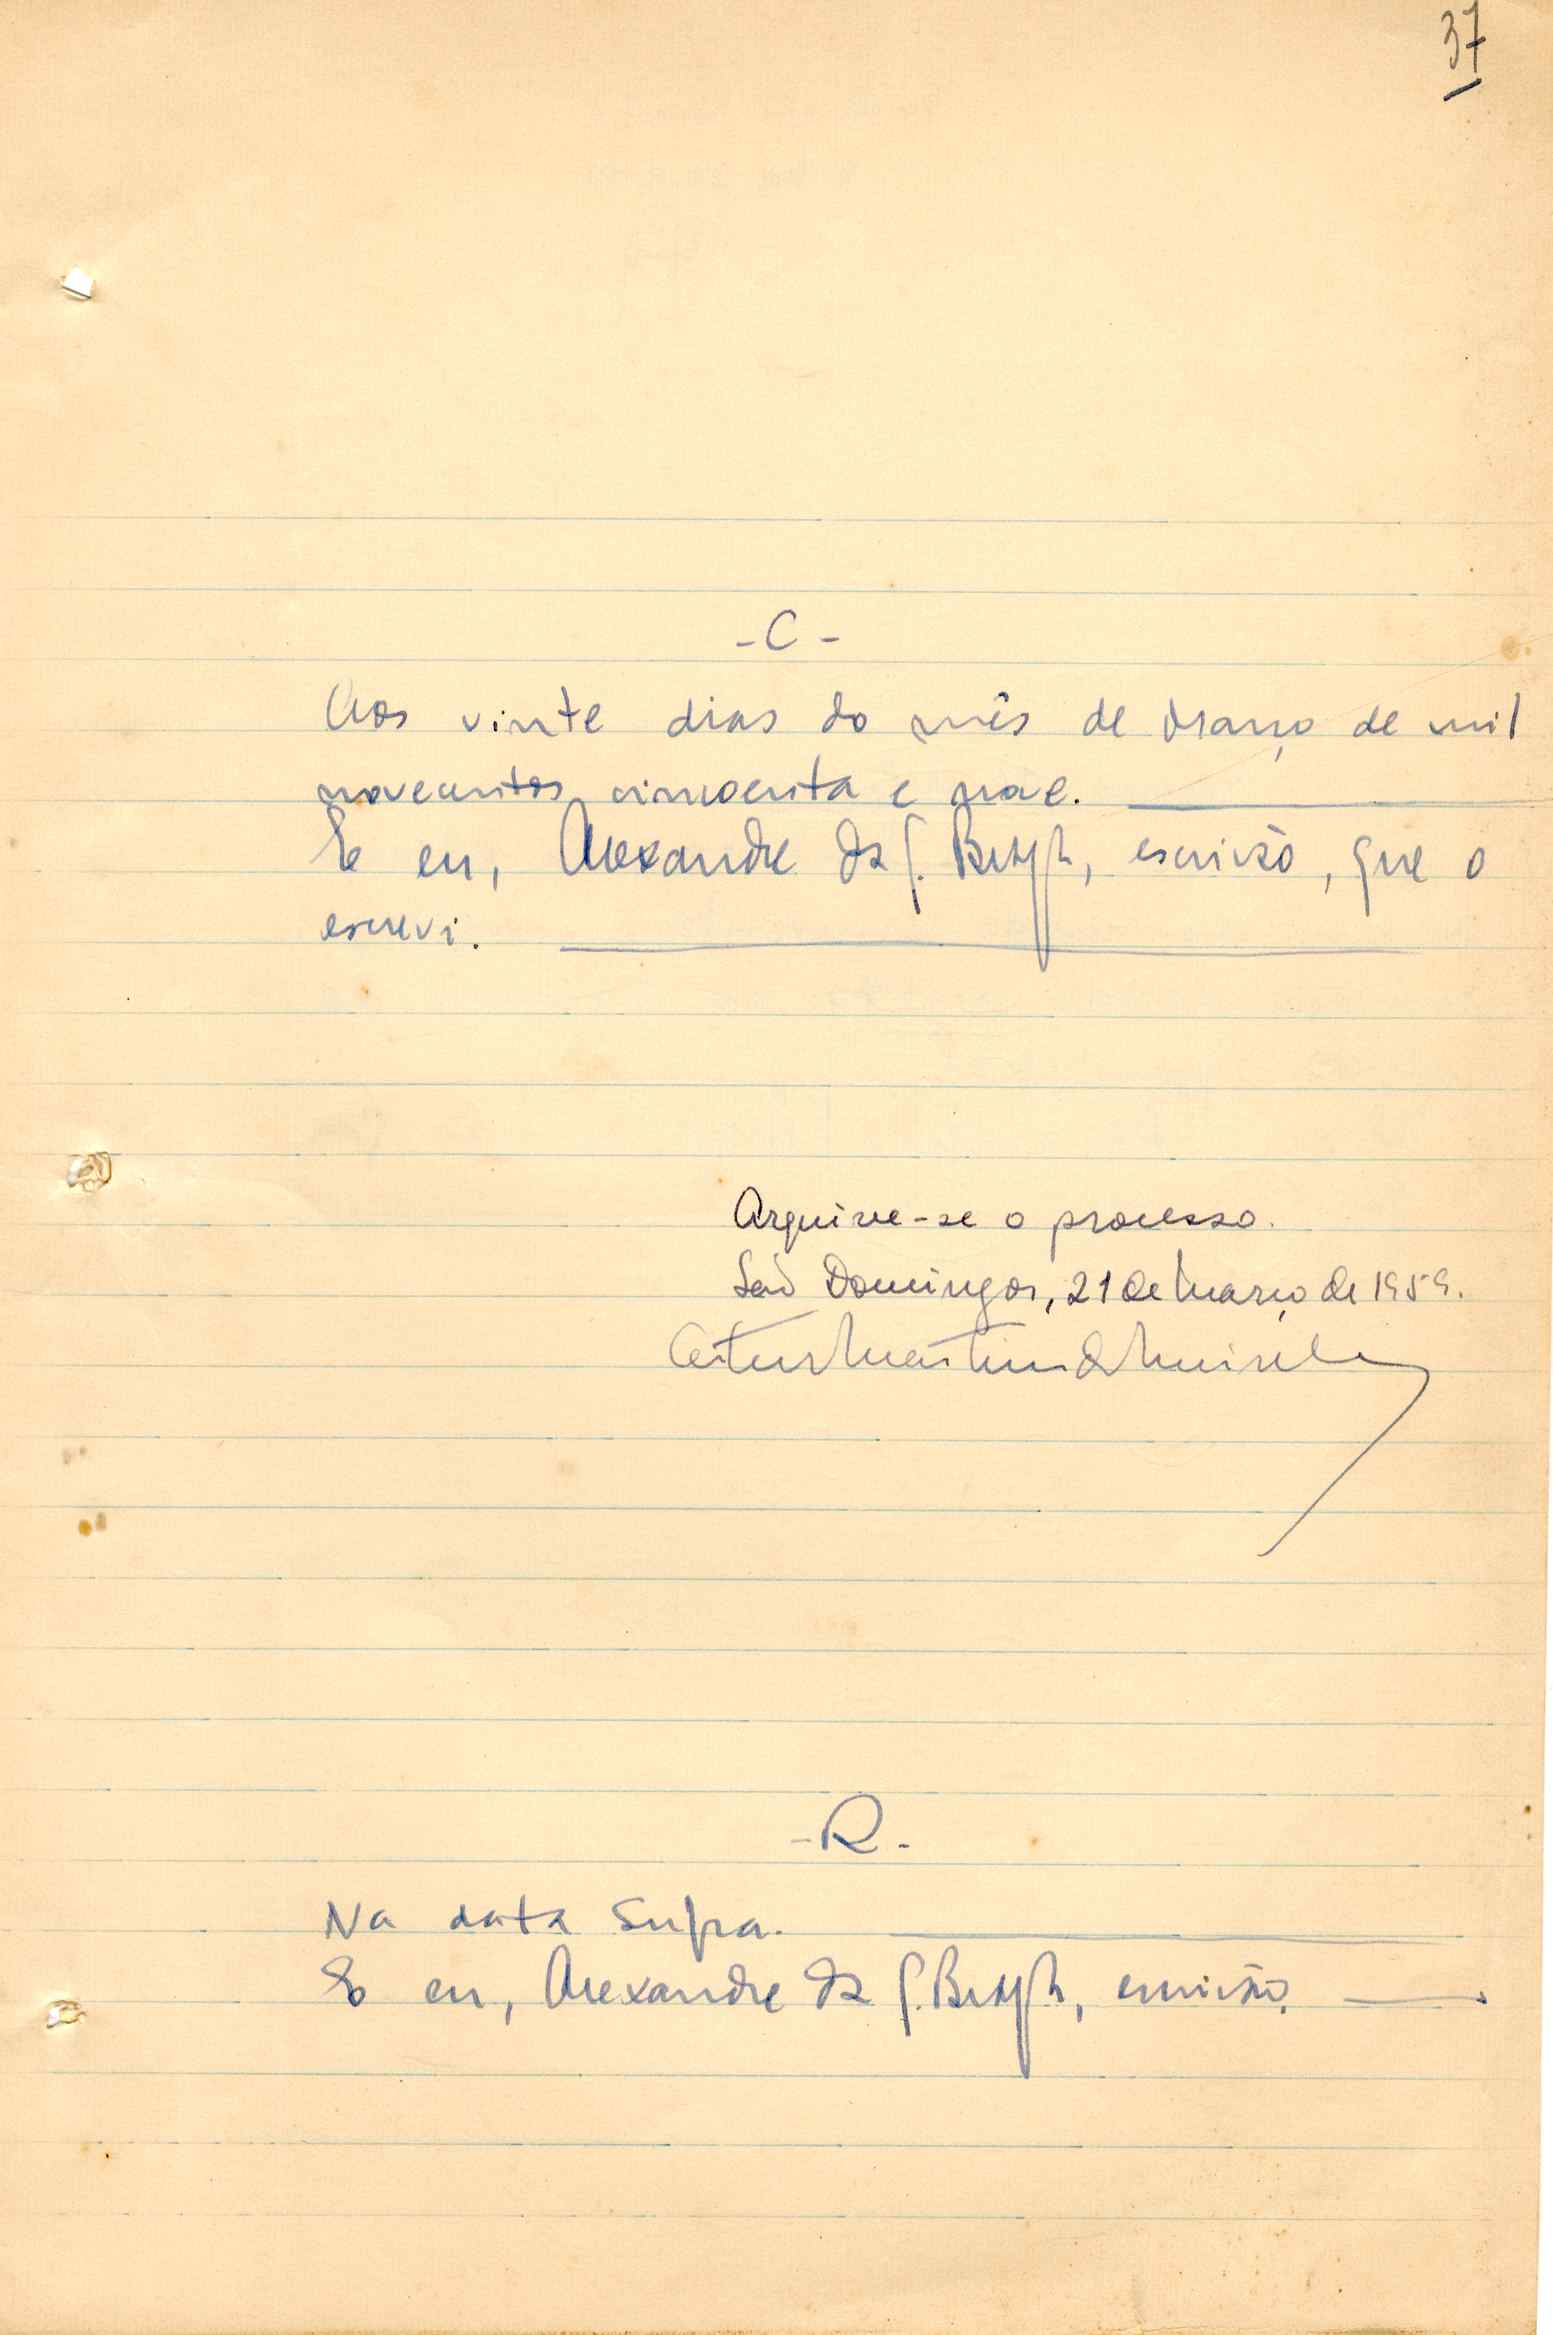 37
- C -
Aos vinte dias do mês de março de mil
novecentos cincoenta e nove.
E eu, Alexandre da S. , escrivão, que o
escrevi.
Arquive-se o processo.
São Domingos, 21 de março de 1959.
Artur Martins de
- R -
Na data supra.
E eu, Alexandre da S. , escrivão